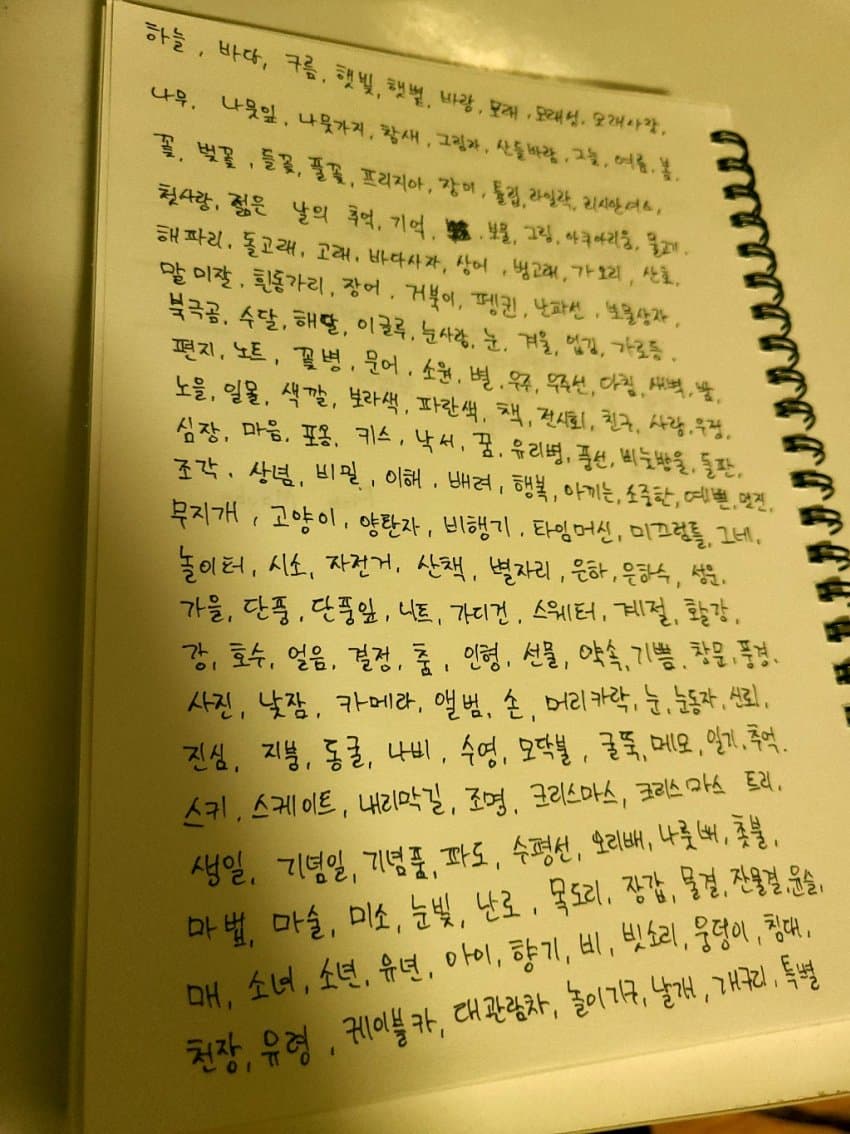 하늘, 바다, 구름, 햇빛, 햇볕, 바람, 모래, 모래성, 모래사장,
나무, 나뭇잎, 나뭇가지, 참새, 그림자, 산들바람, 그늘, 여름, 봄,
꽃, 벚꽃, 들꽃, 풀꽃, 프리지아, 장미, 튤립, 라일락, 리시안셔스,
첫사랑, 젊은 날의 추억, 기억, 보물, 그림, 아쿠아리움, 물고기,
해파리, 돌고래, 고래, 바다사자, 상어, 범고래, 가오리, 산호,
말미잘, 흰동가리, 장어, 거북이, 펭귄, 난파선, 보물상자,
북극곰, 수달, 해달, 이글루, 눈사람, 눈, 겨울, 입김, 가로등,
편지, 노트, 꽃병, 문어, 소원, 별, 우주, 우주선, 다짐, 새벽, 밤,
노을, 일몰, 색깔, 보라색, 파란색, 책, 전시회, 친구, 사랑, 우정,
심장, 마음, 포옹, 키스, 낙서, 꿈, 유리병, 풍선, 비눗방울, 돌판,
조각, 상념, 비밀, 이해, 배려, 행복, 아끼는, 소중한, 예쁜, 멋진,
무지개, 고양이, 양탄자, 비행기, 타임머신, 미끄럼틀, 그네,
놀이터, 시소, 자전거, 산책, 별자리, 은하, 은하수, 성운,
가을, 단풍, 단풍잎, 니트, 가디건, 스웨터, 계절, 활강,
강, 호수, 얼음, 결정, 춤, 인형, 선물, 약속, 기쁨, 창문, 풍경,
사진, 낮잠, 카메라, 앨범, 손, 머리카락, 눈, 눈동자, 신뢰,
진심, 지붕, 동굴, 나비, 수영, 모닥불, 굴뚝, 메모, 일기, 추억.
스키, 스케이트, 내리막길, 조명, 크리스마스, 크리스마스 트리,
생일, 기념일, 기념품, 파도, 수평선, 오리배, 나룻배, 촛불,
마법, 마술, 미소, 눈빛, 난로, 목도리, 장갑, 물결, 잔물결, 윤슬,
매, 소녀, 소년, 유년, 아이, 향기, 비, 빗소리, 웅덩이, 침대,
천장, 유령, 케이블카, 대관람차, 놀이기구, 날개, 개구리, 특별